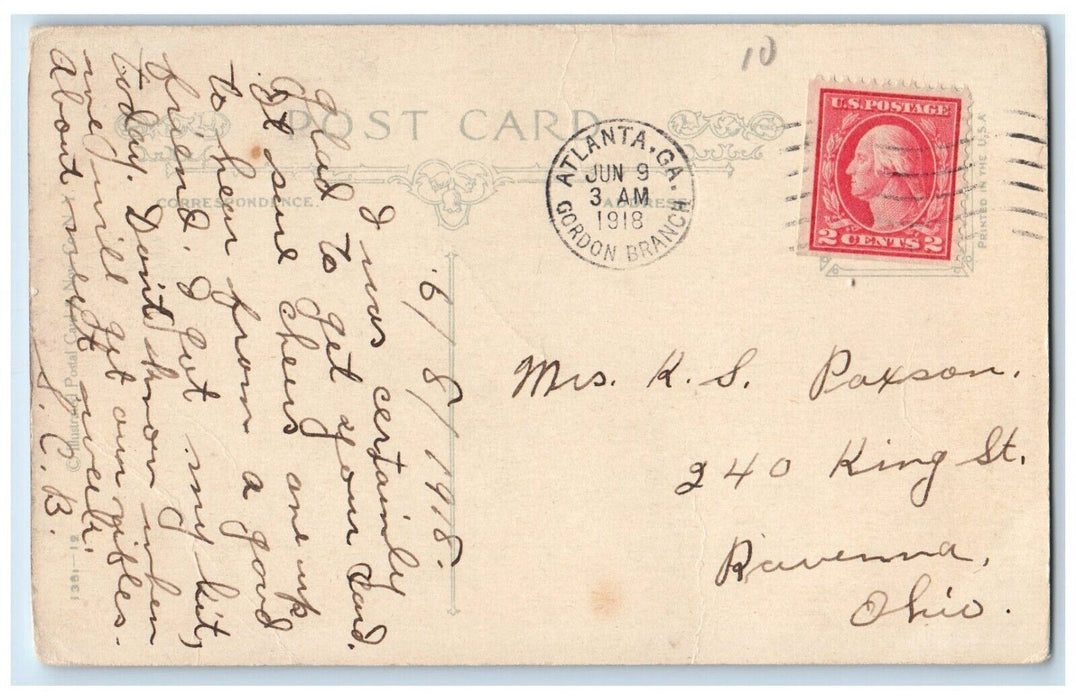 10
POST CARD
CORRESPONDENCE.
ADDRESS
ATLANTA, GA.
JUN 9
3 AM
1918
GORDON BRANCH
U.S. POSTAGE
2 CENTS 2
PRINTED IN THE U.S.A
6/8/1918.
I was certainly
glad to get your card.
It sure cheers one up
to hear from a good
friend. I got my kit,
today. Don't know when
we will get our rifles.
about next week.
S. C. B.
Mrs. K. S. Paxson.
240 King St.
Ravenna,
Ohio.
© Illustrated Postal Card & Nov. Co. N.Y.
1381—12